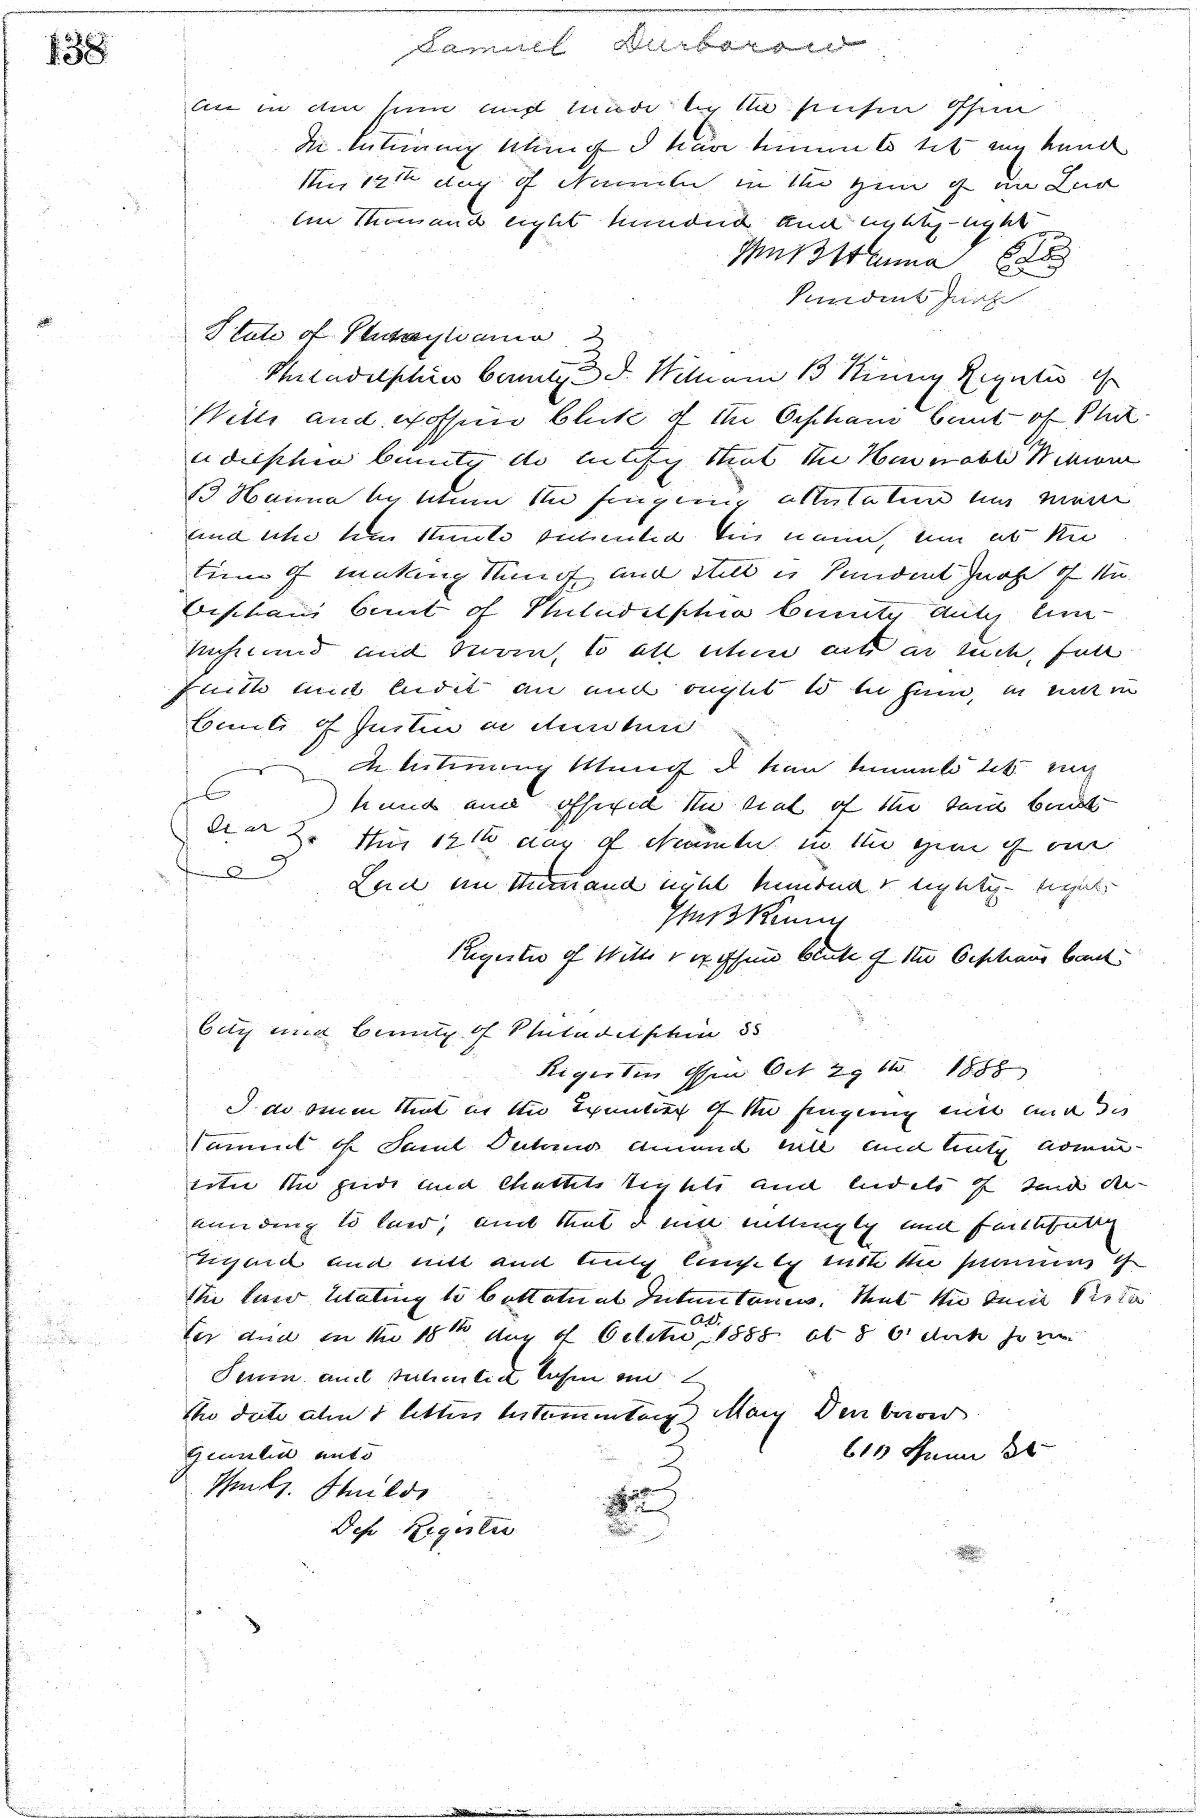 138
Samuel Durborow
are in due form and made by the proper officer
In testimony whereof I have hereunto set my hand
this 12th day of November in the year of our Lord
one thousand eight hundred and eighty-eight
Wm B Hanna LS
President Judge
State of Pennsylvania
Philadelphia County I. William B Kinny Register of
Wills and exofficio Clerk of the Orphans Court of Phil-
adelphia County do certify that the Honorable William
B Hanna by whom the foregoing attestation was made
and who has thereto subscribed his name, was at the
time of making thereof, and still is President Judge of the
Orphans Court of Philadelphia County duly com-
missioned and sworn, to all whose acts as such, full
faith and credit are and ought to be given, as well in
Courts of Justice as elsewhere
In testimony whereof I have hereunto set my
hand and affixed the seal of the said Court
Seal this 12th day of November in the year of our
Lord one thousand eight hundred & eighty-eight
Wm B Kinny
Register of Wills & exofficio Clerk of the Orphans Court
City and County of Philadelphia SS
Registers Office Oct 29th 1888
I do swear that as the Executrix of the foregoing will and Tes
tament of Saml Durborow deceased will and truly admin-
ister the goods and Chattels rights and credits of said de-
according to law; and that I will willingly and faithfully
regard and will and truly comply with the provisions of
the law relating to Collateral Inheritances. That the said Testa
tor died on the 18th day of October AD. 1888 at 8 O'clock
Sworn and subscribed before me
the date above & letters testamentary Mary Durborow
Granted unto 610 St
Wm G. Shields
Dep Register